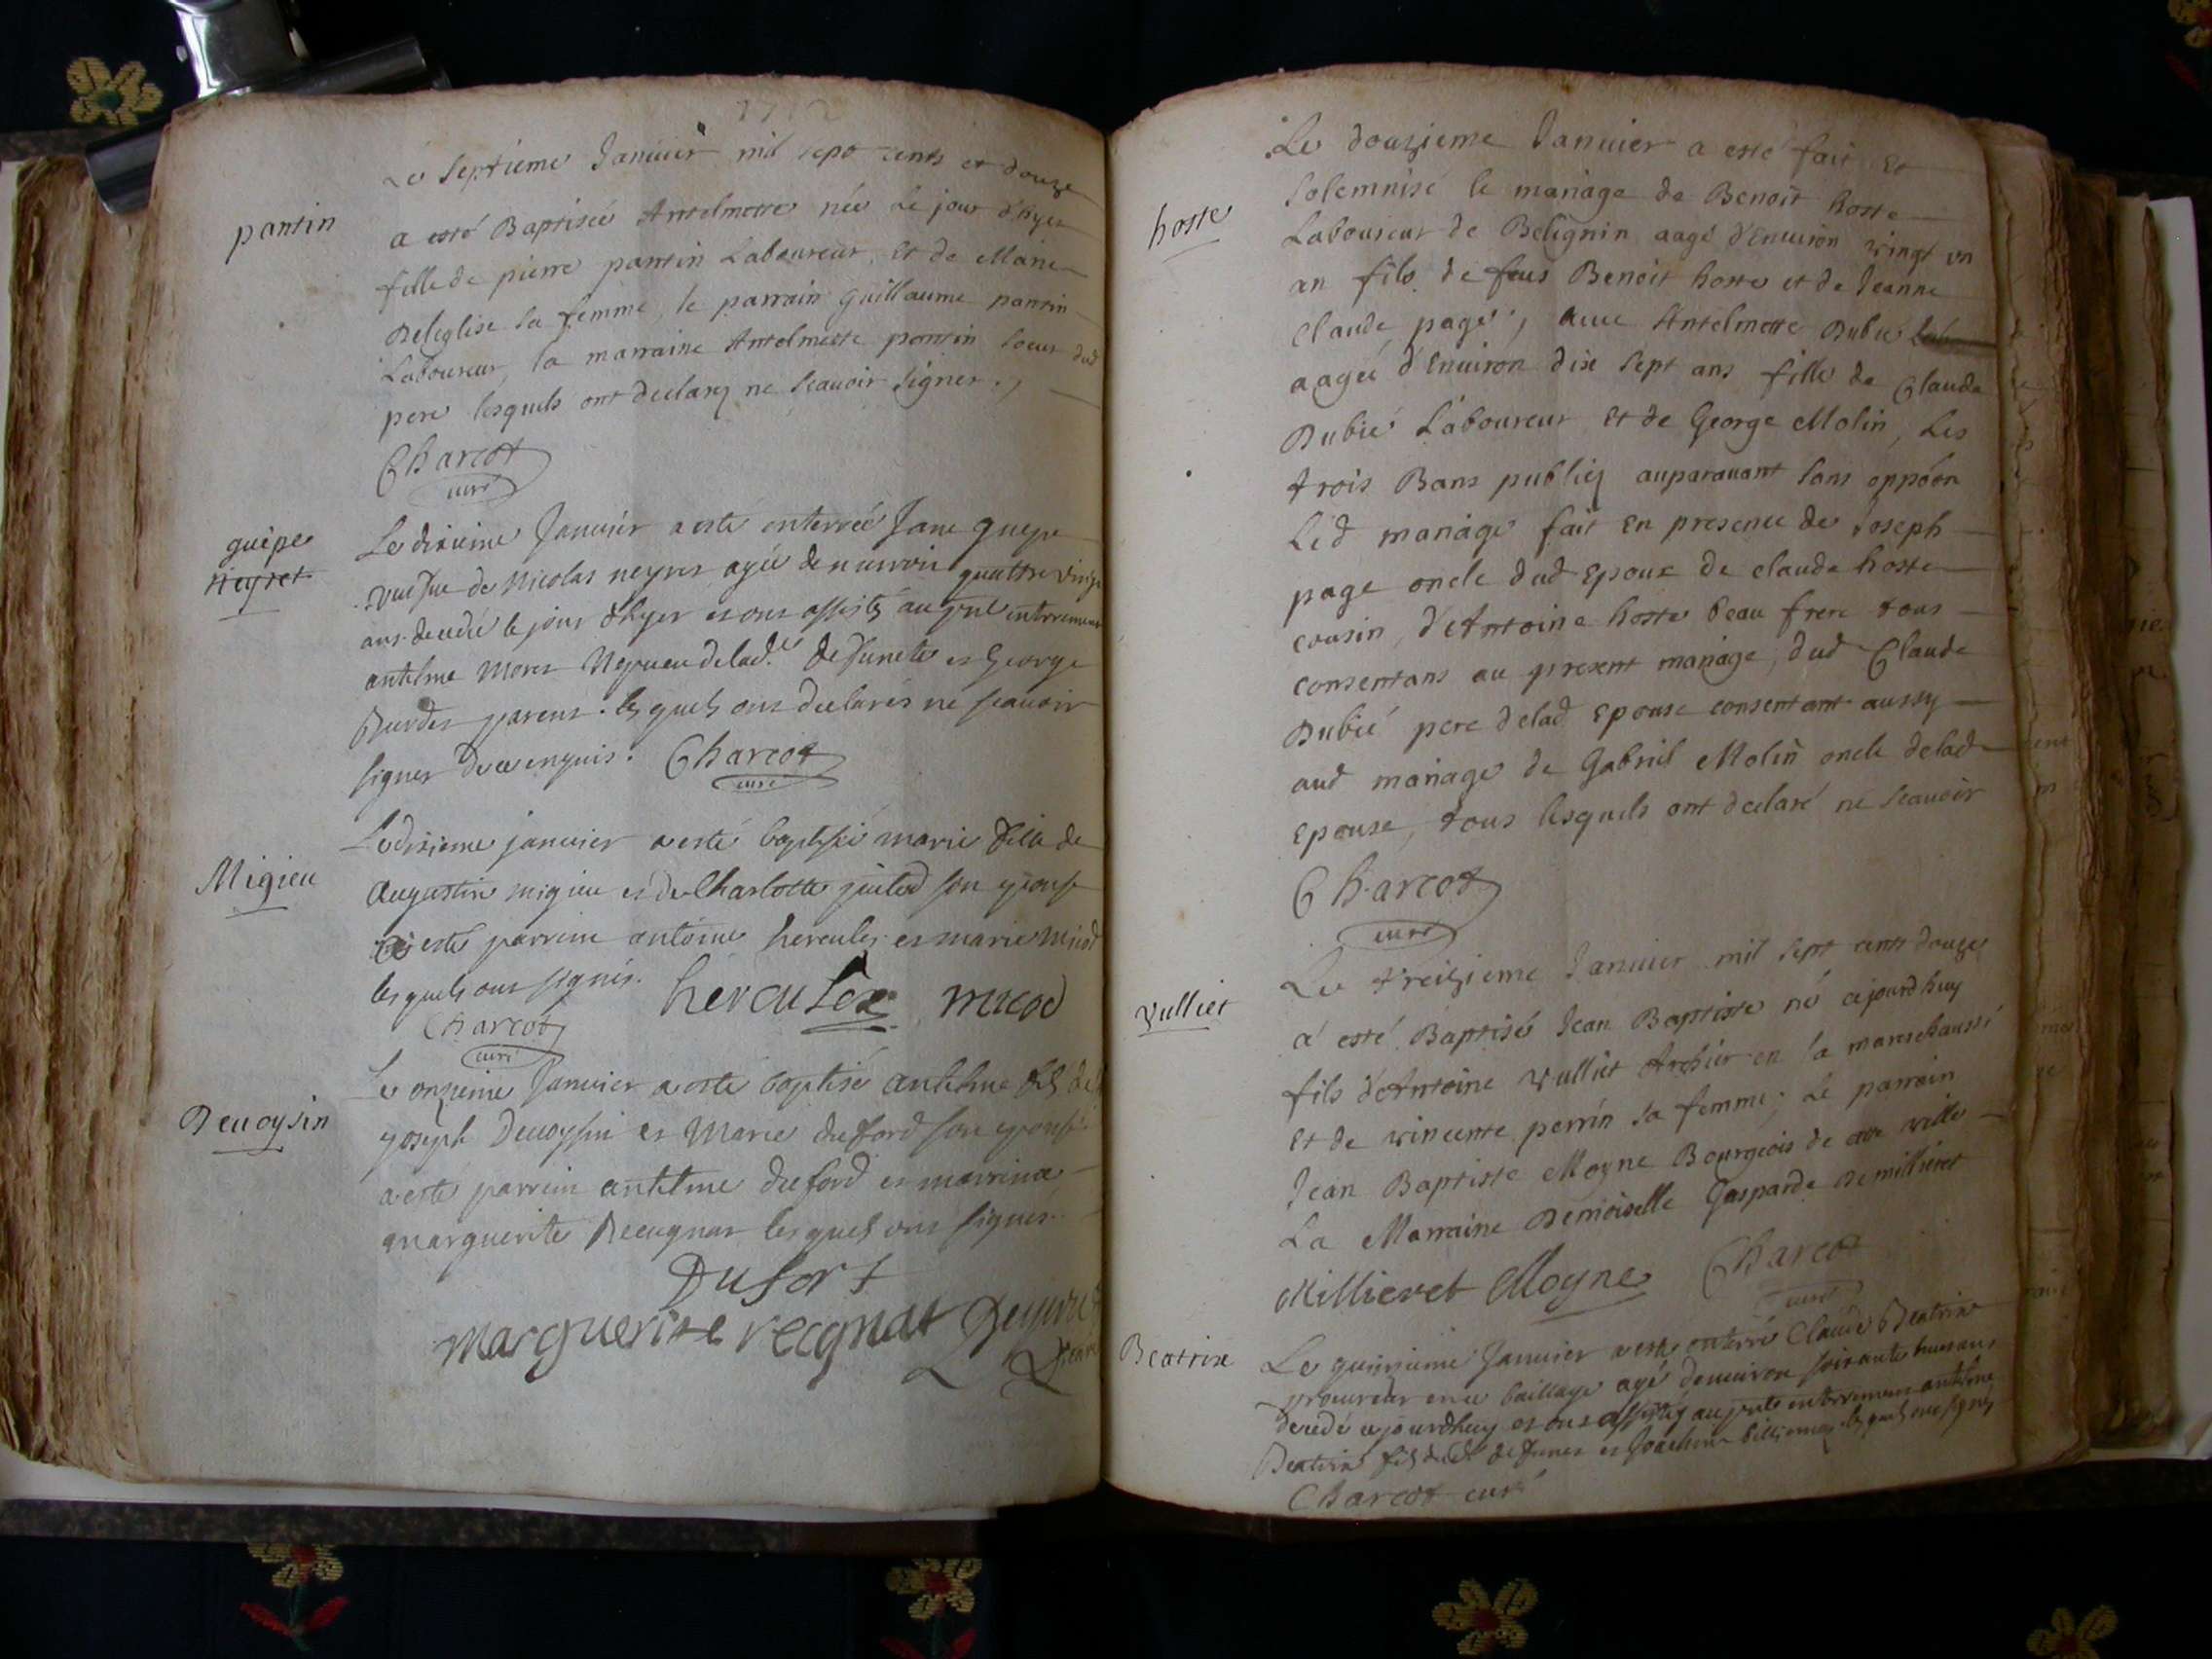 1712
Le Septieme Januier mil sept cents et douze
pantin
a esté Baptisée Antelmette née Le jour d'hyer
fille de pierre pantin Laboureur, Et de Marie
Deleglise sa femme, le parrain guillaume pantin
Laboureur, la marraine Antelmette pantin soeur dud
pere lesquels ont declarez ne Scauoir Signer.
Charcot
curé
guepe
Neyret
Le dixieme Januier a esté enterrée Jane guepe
veufue de Nicolas neyret agée denuiron quattre vingt
ans decedé le jour d'hyer et ont assistés au pnt enterrement
antelme Moret Nepueu delade. defuncte et George
Burdet parens. les quels ont declarés ne scauoir
signer de ce enquis. Charcot
curé
Le dixieme januier a esté baptisée marie fille de
Migieu
Augustin migieu et de Charlotte juilod son epouse
a esté parrein antoine hercules et marie micod
les quels ont signés. hercules micod
Charcot
curé
Le onzieme Januier a esté baptisé antelme fils de
Deuoysin
joseph Deuoysin et Marie duford son epouse
a esté parrein antelme duford et marrina
marguerite Recugnat les quels ont signés.
Dufort
Marguerite recgnat
Le douzieme Januier a esté fait Et
solemnisé le mariage de Benoit hoste
hoste
Laboureur de Belignin aagé d'Enuiron vingt un
an fils de feus Benoit hoste et de Jeanne
Claude page, auec Antelmette Dubié
aagée d'Enuiron dix sept ans fille de Claude
Dubié Laboureur Et de George Molin, Les
trois Bans publiez auparauant sans oppôon
Led mariage fait En presence de Joseph
page oncle dud Epoux de claude hoste
cousin, d'Antoine hoste beau frere tous
consentans au present mariage, dud Claude
Dubié pere delad Epouse consentant aussy
aud mariage de Gabriel Molin oncle delad
Epouse, tous lesquels ont declaré ne scauoir
Charcot
curé
Le treizieme Januier mil sept cents douze
Vulliet
a esté Baptisé Jean Baptiste né cejourdhuy
fils d'Antoine Vulliet Archier en la mareschaussé
Et de vincente perrin sa femme; Le parrain
Jean Baptiste Moyne Bourgeois de cette ville
La Marraine Demoiselle Gasparde Demillieret
Millieret Moyne Charcot
curé
Beatrix
Le quinzieme Januier a esté enterré Claude Beatrix
procureur en ce baillage agé denuiron soixante huit ans
decedé cejourdhuy et ont assistés au pnt enterrement antelme
Beatrix fils dud defunct et Joachim billiemaz les quels ont signés
Charcot curé